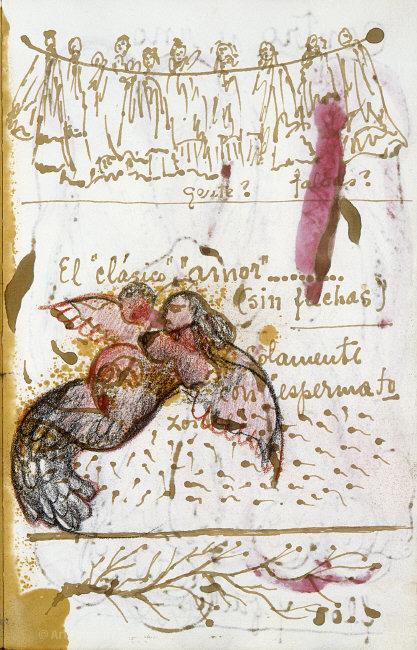 gente? faldas?
El "clásico" "amor"..........
(sin flechas)
solamente
con espermato